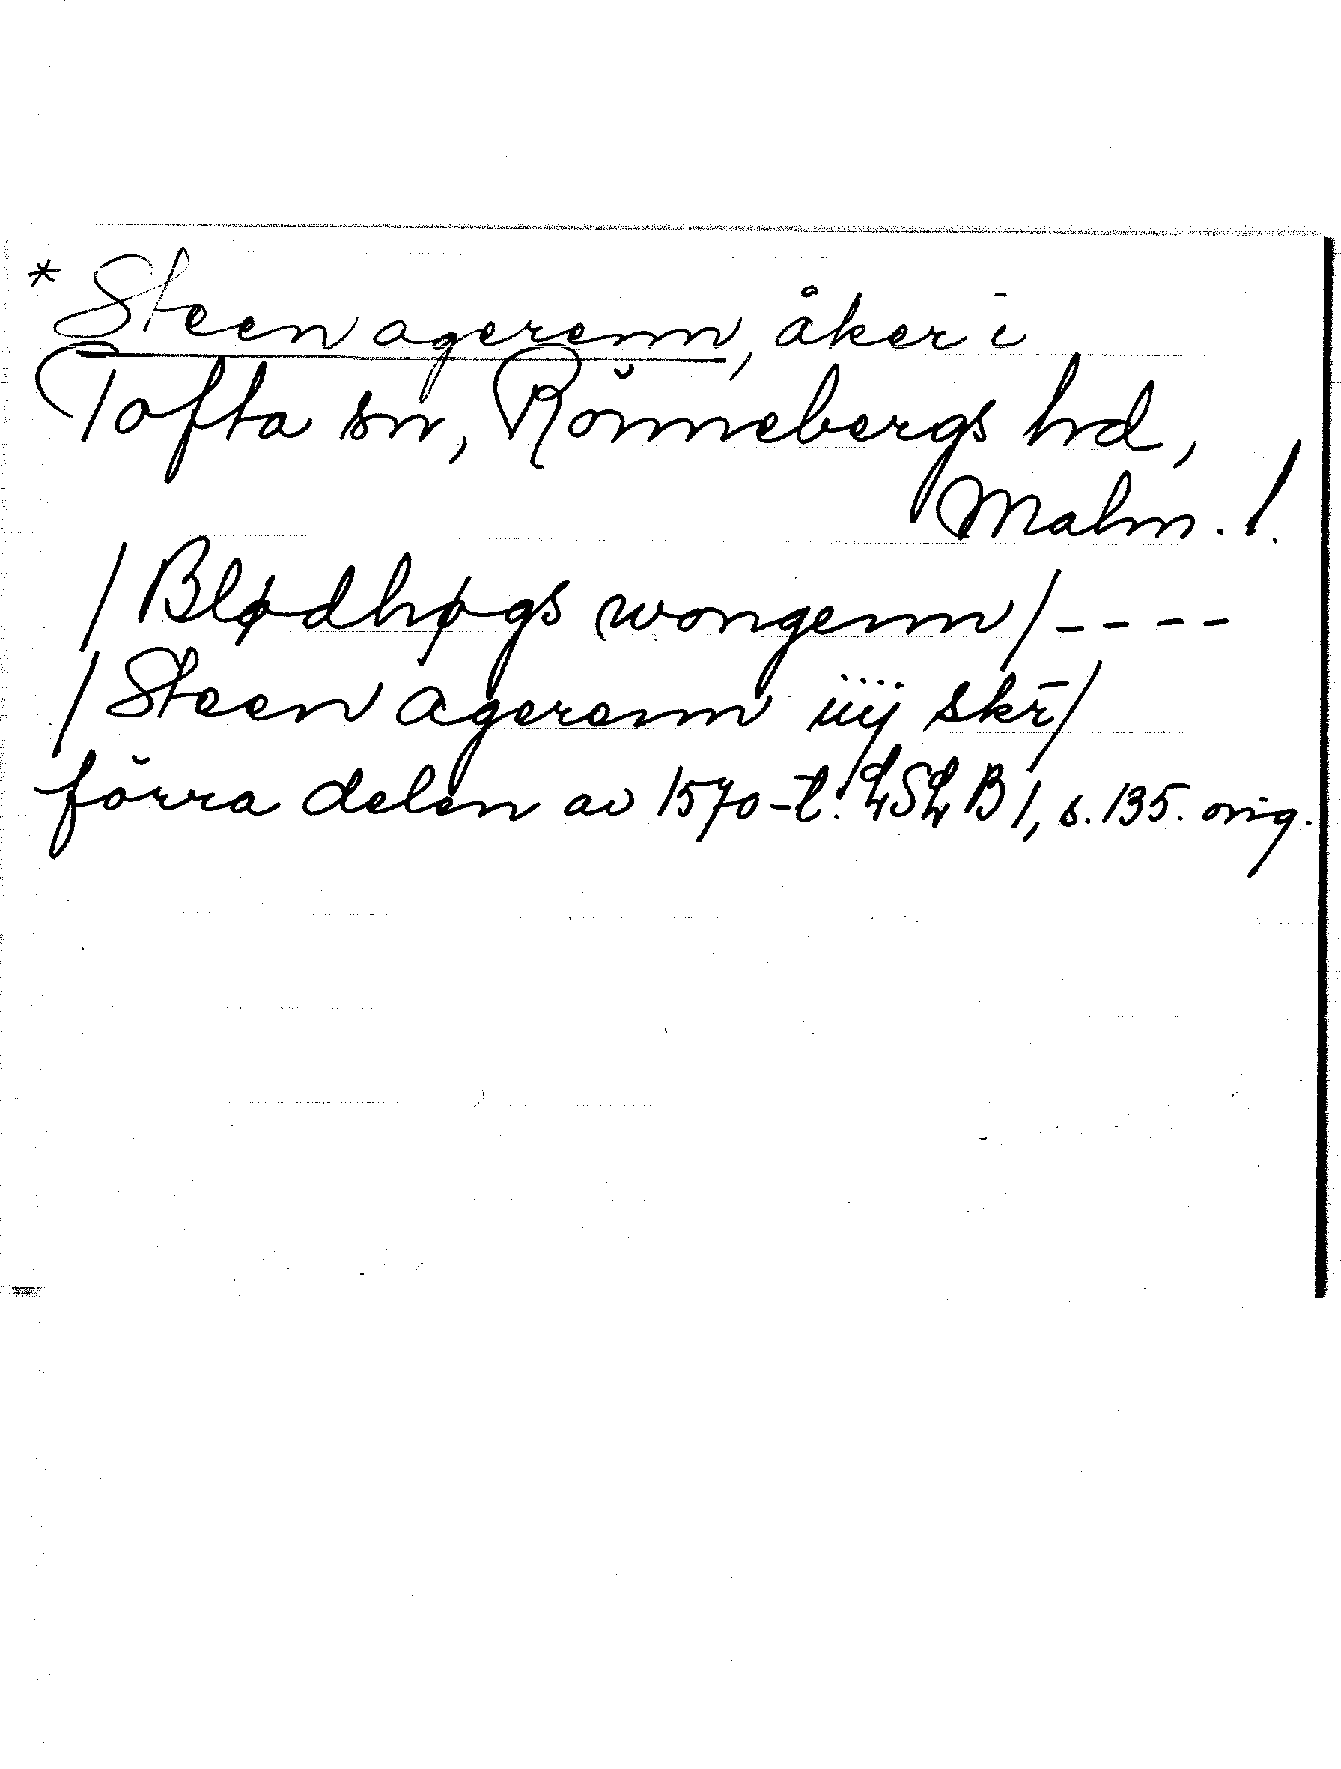 * Steen agerenn, åker i
Tofta sn, Rönnebergs hd,
Malm. l.
/Blødhøgs wongenn/----
/Steen agerenn iiij skr̄/
förra delen av 1570-t. LSL B I, s. 135. orig.